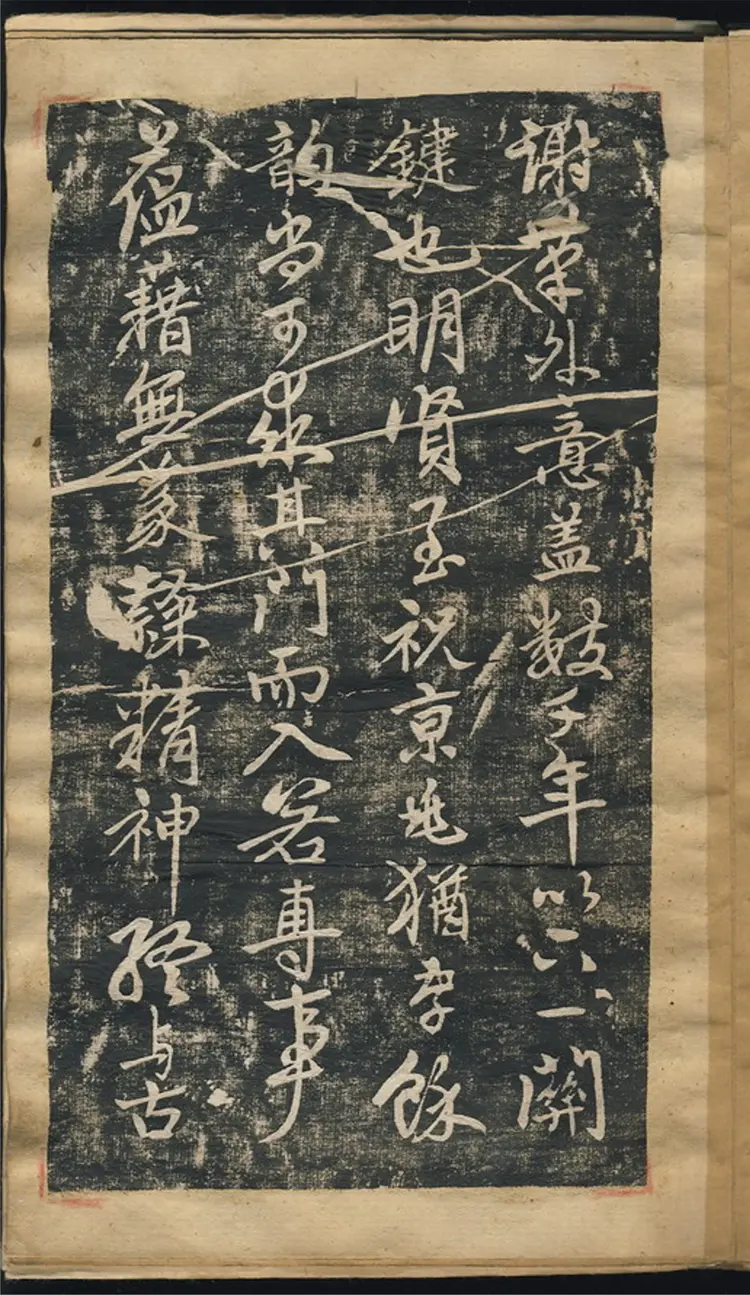 謝筆外意盖數千年以下一關
鍵也明賢至祝京兆猶存餘
韻尚可其門而入若專事
蘊藉無篆隸精神終与古